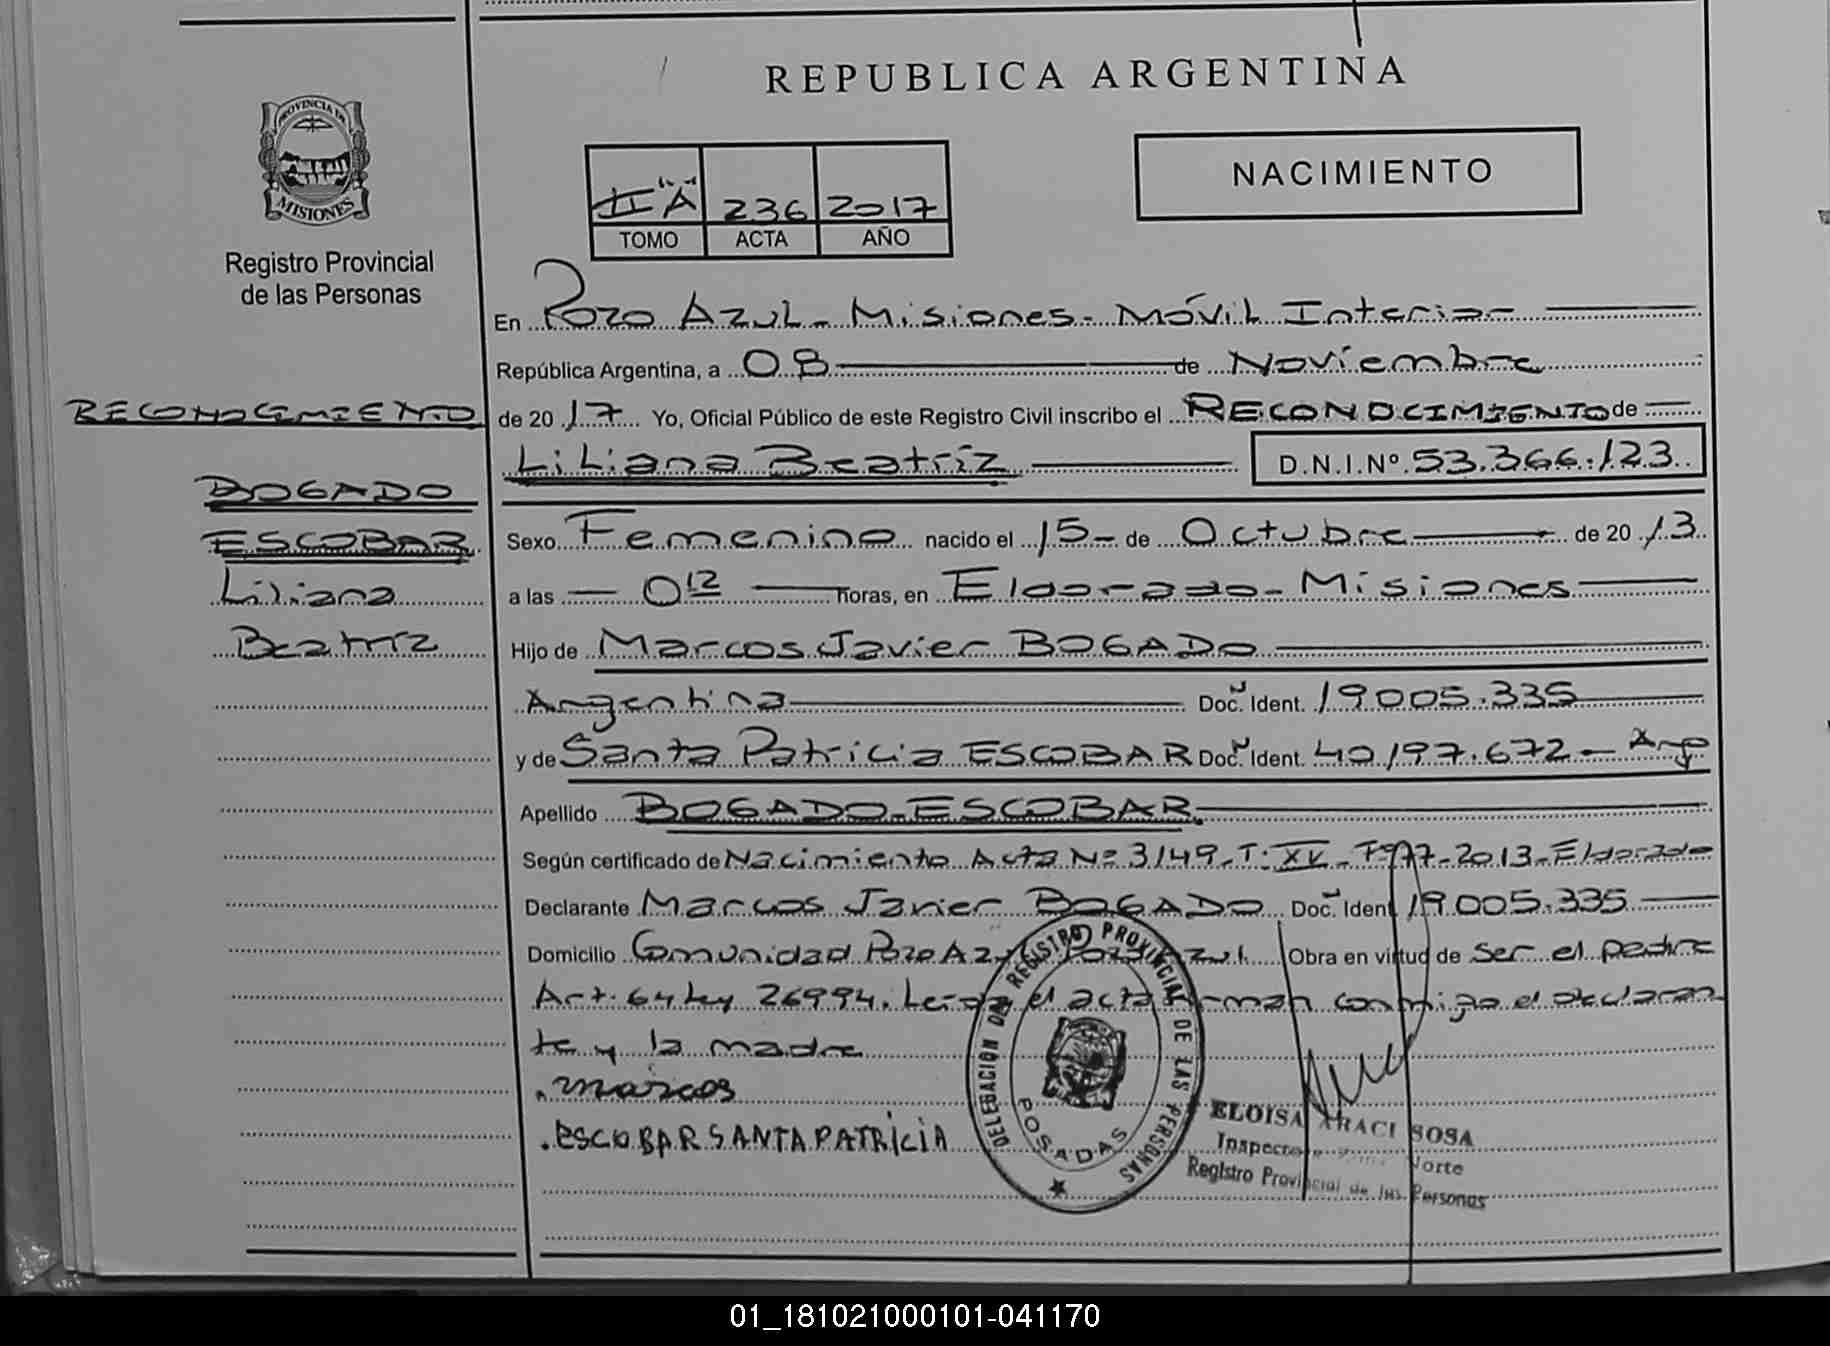 REPUBLICA ARGENTINA
NACIMIENTO
PROVINCIA DE
MISIONES
Registro Provincial
de las Personas
II "A" 236 2017
TOMO ACTA AÑO
En Pozo Azul - Misiones - Móvil Interior
República Argentina, a 08 de Noviembre
RECONOCIMIENTO
de 2017 Yo, Oficial Público de este Registro Civil inscribo el RECONOCIMIENTO de
Liliana Beatríz D.N.I.Nº 53.366.123
BOGADO
ESCOBAR
Liliana
Beatríz
Sexo Femenino nacido el 15 - de Octubre de 2013
a las 0 12 horas, en Eldorado - Misiones
Hijo de Marcos Javier BOGADO
Argentina Doc. Ident. 19.005.335
y de Santa Patricia ESCOBAR Doc. Ident. 40.197.672 - Arg
Apellido BOGADO - ESCOBAR
Según certificado de Nacimiento Acta Nº 3149 - T: XV - 2013 - Eldorado
Declarante Marcos Javier BOGADO Doc. Ident. 19.005.335
Domicilio Comunidad Pozo Azul Pozo Azul Obra en virtud de ser el padre
Art. 64 Ley 26994. Leída el acta firman conmigo el declaran
te y la madre
. marcos
. ESCOBAR SANTA PATRICIA
DELEGACION DEL REGISTRO PROVINCIAL DE LAS PERSONAS
POSADAS
ELOISA ARACI SOSA
Inspectora Zona Norte
Registro Provincial de las Personas
01_181021000101-041170